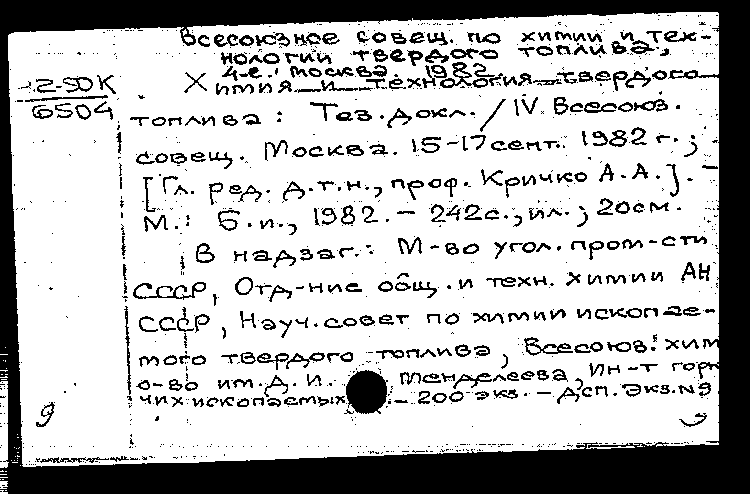 Всесоюзное совещ. по химии и тех-
нологии твердого топлива,
4-е. Москва. 1982
2-50К
6504
Химия и технология твердого
топлива : Тез. докл. / IV Всесоюз.
совещ. Москва. 15-17 сент. 1982 г. ;
[Гл. ред. д.т.н., проф. Кричко А.А.]. –
М.: Б.и., 1982. – 242с., ил. ; 20см.
В надзаг.: М-во угол. пром-сти
СССР, Отд-ние общ. и техн. химии АН
СССР, Науч. совет по химии ископае-
мого твердого топлива, Всесоюз. хим
о-во им. Д. И. Менделеева, Ин-т горю
чих ископаемых – 200 экз. – Дсп. Экз. №9
9